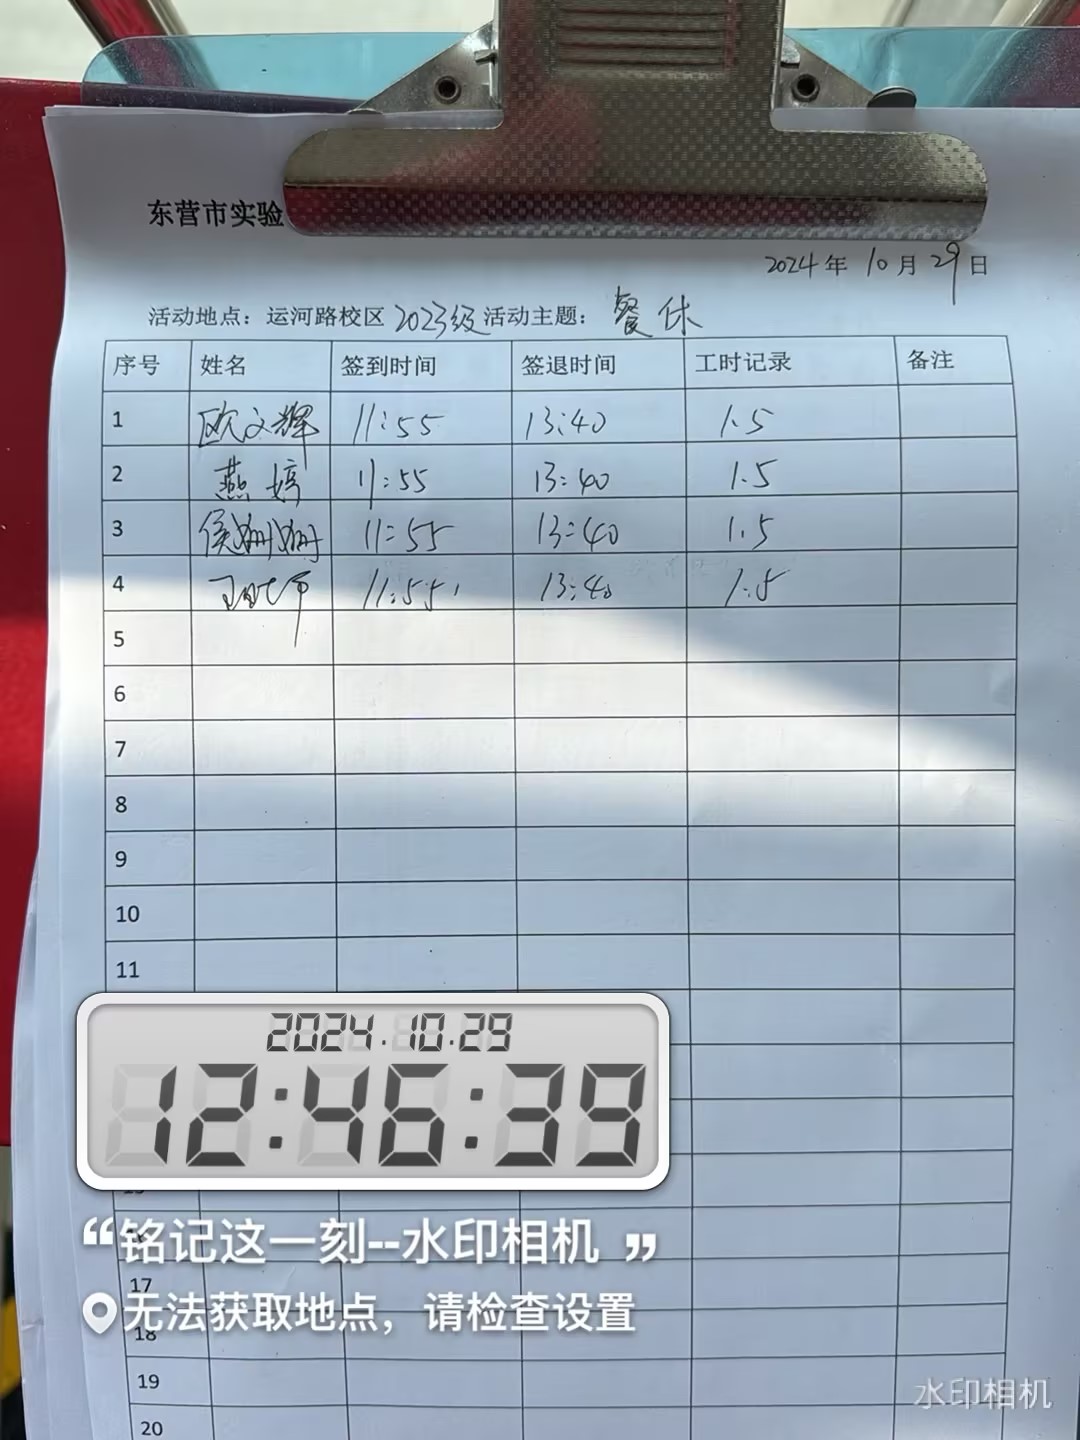 东营市实验
2024年 10月 29日
活动地点：运河路校区 2023级 活动主题： 餐休
序号 姓名 签到时间 签退时间 工时记录 备注
1 欧文辉 11:55 13:40 1.5
2 燕婷 11:55 13:40 1.5
3 侯姗姗 11:55 13:40 1.5
4 11:55 13:40 1.5
5
6
7
8
9
10
11
2024.10.29
12:46:39
“铭记这一刻--水印相机 ”
17
无法获取地点，请检查设置
18
19
水印相机
20